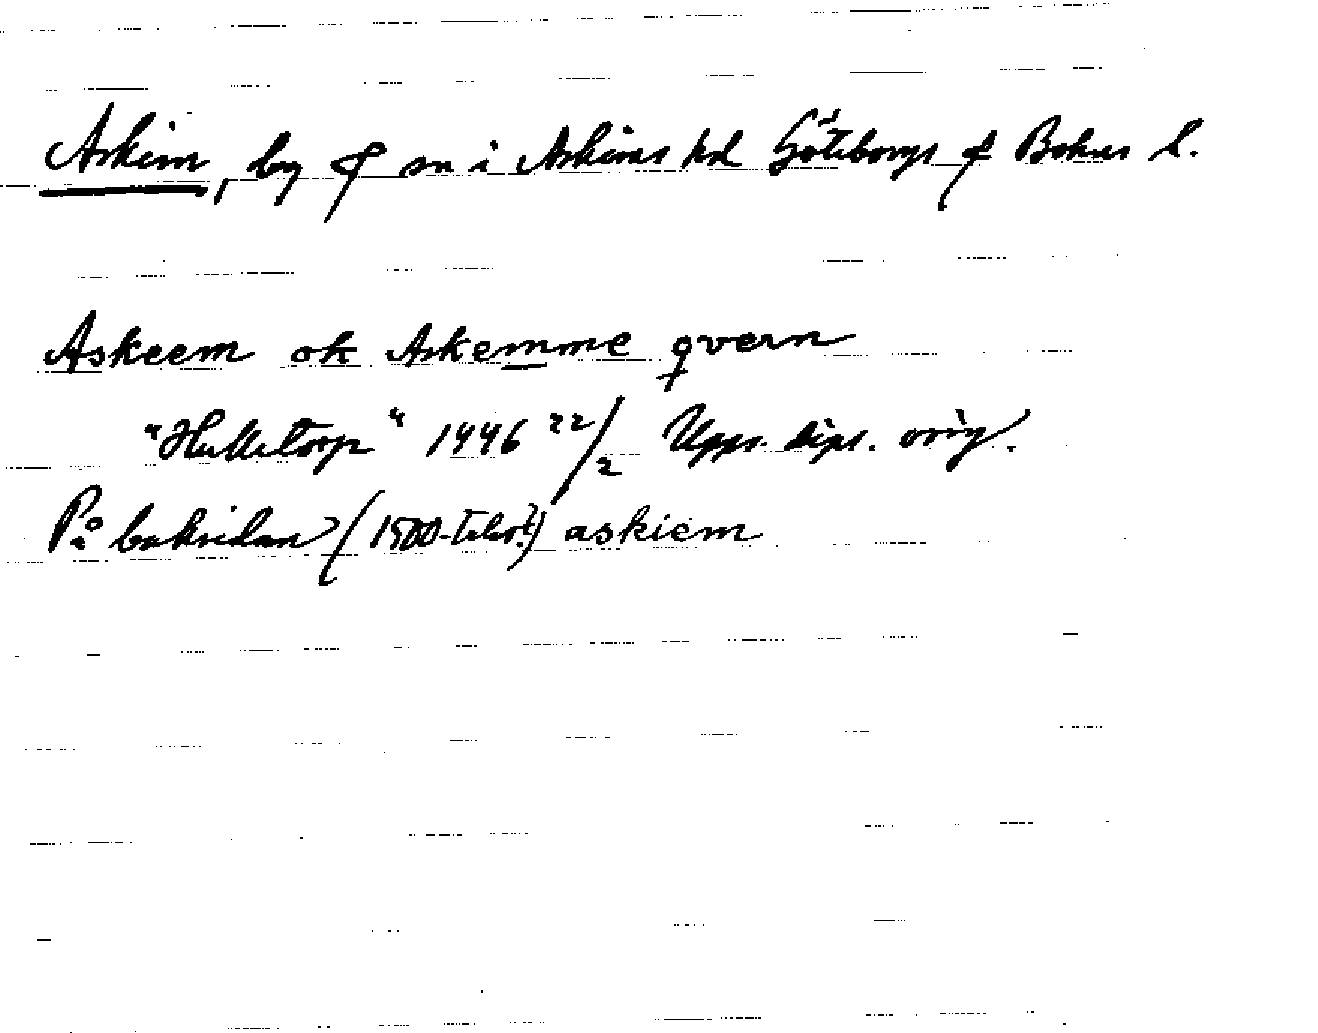 Askim, by & sn i Askims hd Göteborgs & Bohus l.
Askeem ok Askemme qvern
"Hulletorp" 1446 22/2 Upps. dipl. orig.
På baksidan (1500-talet?) askiem